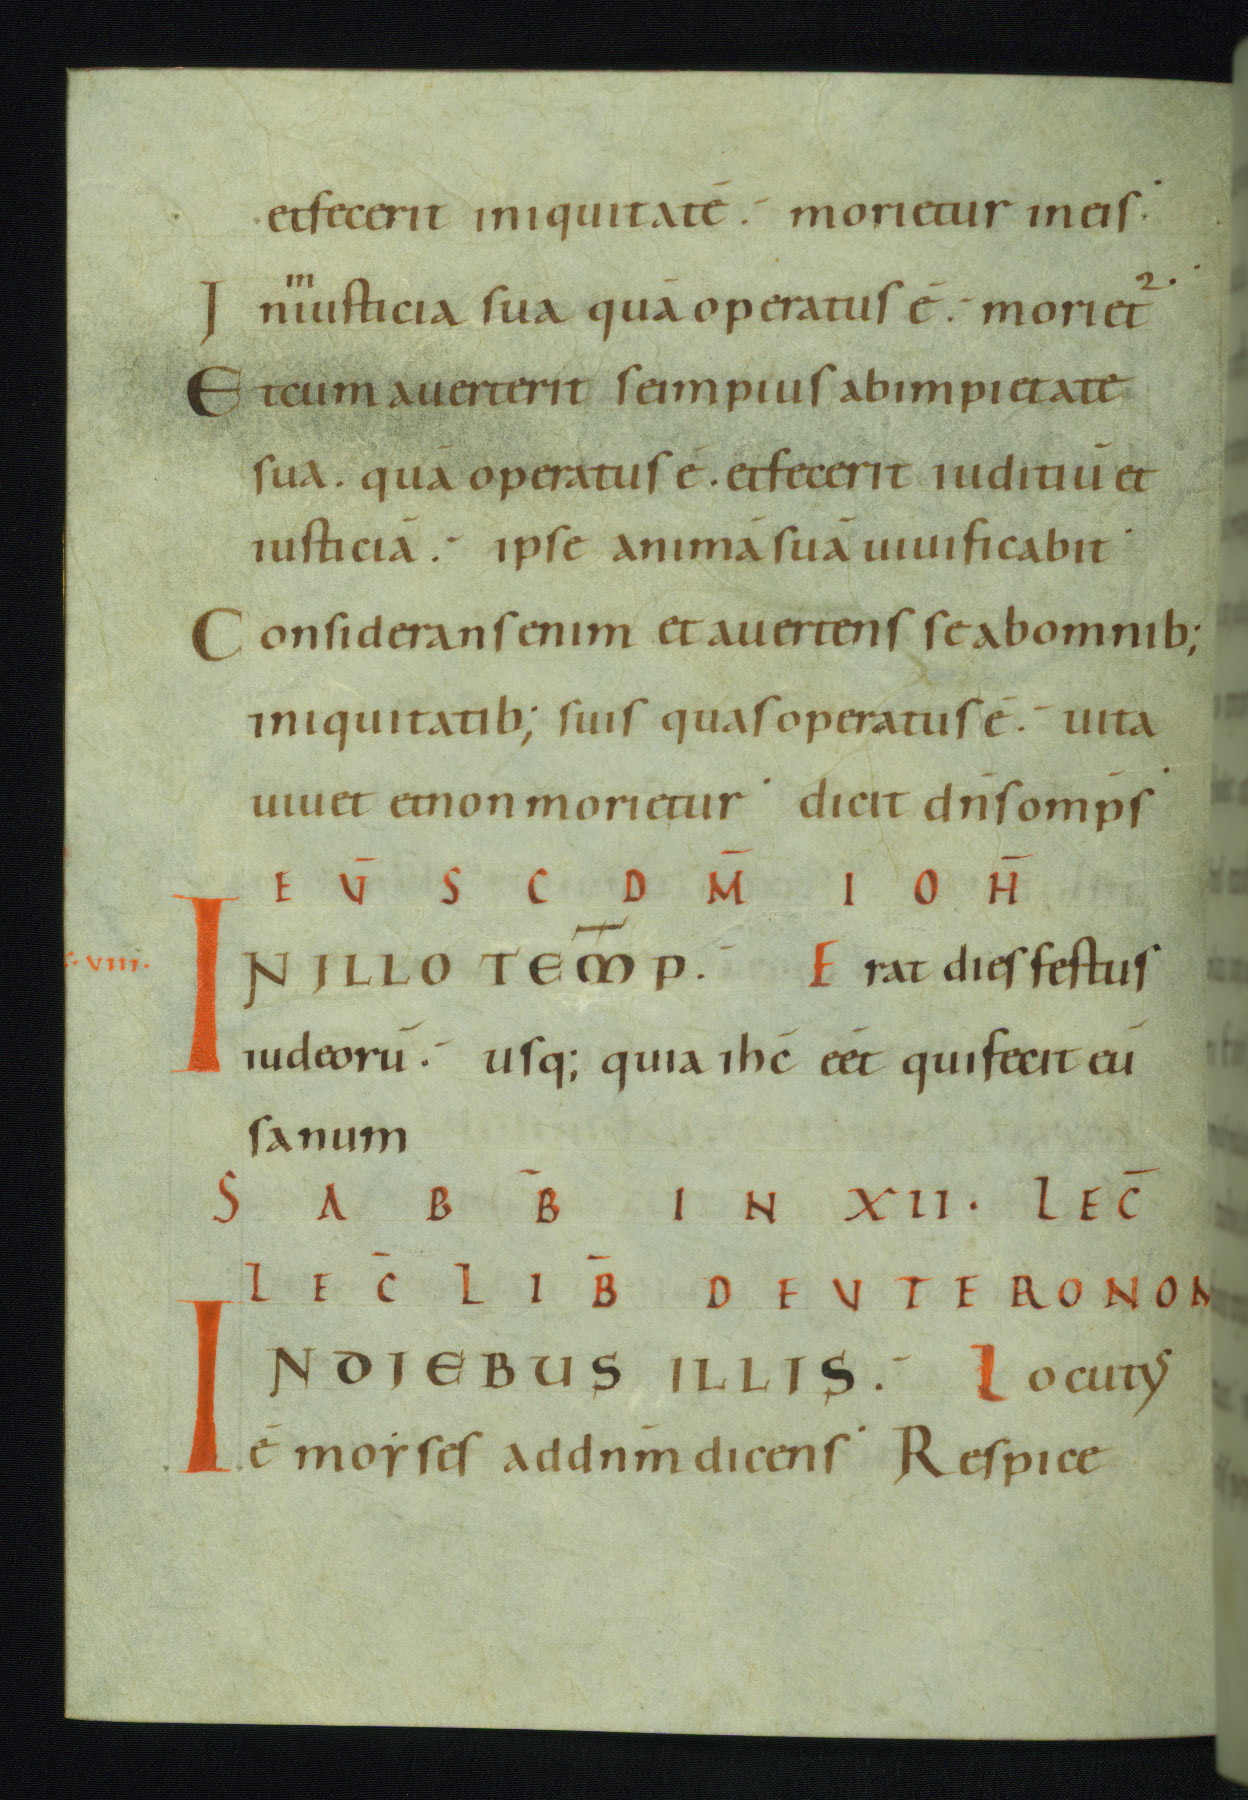 etfecerit iniquitatē. morietur ineis.
In^miusticia sua quā operatus ē. moriet²
Etcum auerterit seimpius abimpietate
sua. quā operatus ē. etfecerit iuditiū et
iusticiā. ipse animā suā uiuificabit
Consideransenim et auertens seabomnib;
iniquitatib; suis quas operatus ē. uita
uiuet etnon morietur dicit dn̄s omp̄s
EṼ SCDM̄ IOH̄
·VIII·
INILLO TEM̄P. Erat dies festus
iudeorū. usq; quia ihc̄ eēt quifecit eū
sanum
SABB̄ IN XII. LEC̄
LEC̄ LIB̄ DEUTERONOM
INDIEBUS ILLIS. Locutꝰ
ē moyses addnm̄ dicens Respice